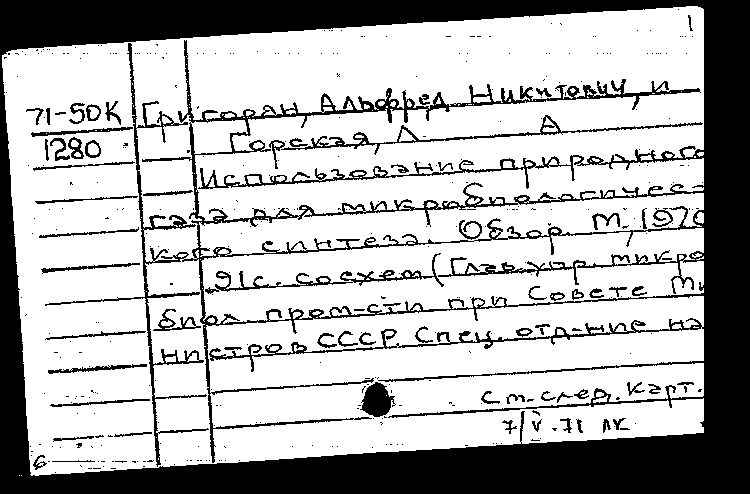 1
71-50К Григорян, Альфред Никитович, и
1280 Горская, Л А
Использование природного
газа для микробиологичес-
кого синтеза. Обзор. М., 1970
91с. со схем (Глав. упр. микро
биол пром-сти при Совете Ми
нистров СССР. Спец. отд-ние на
см. след. карт.
7/V.71 ЛК
6